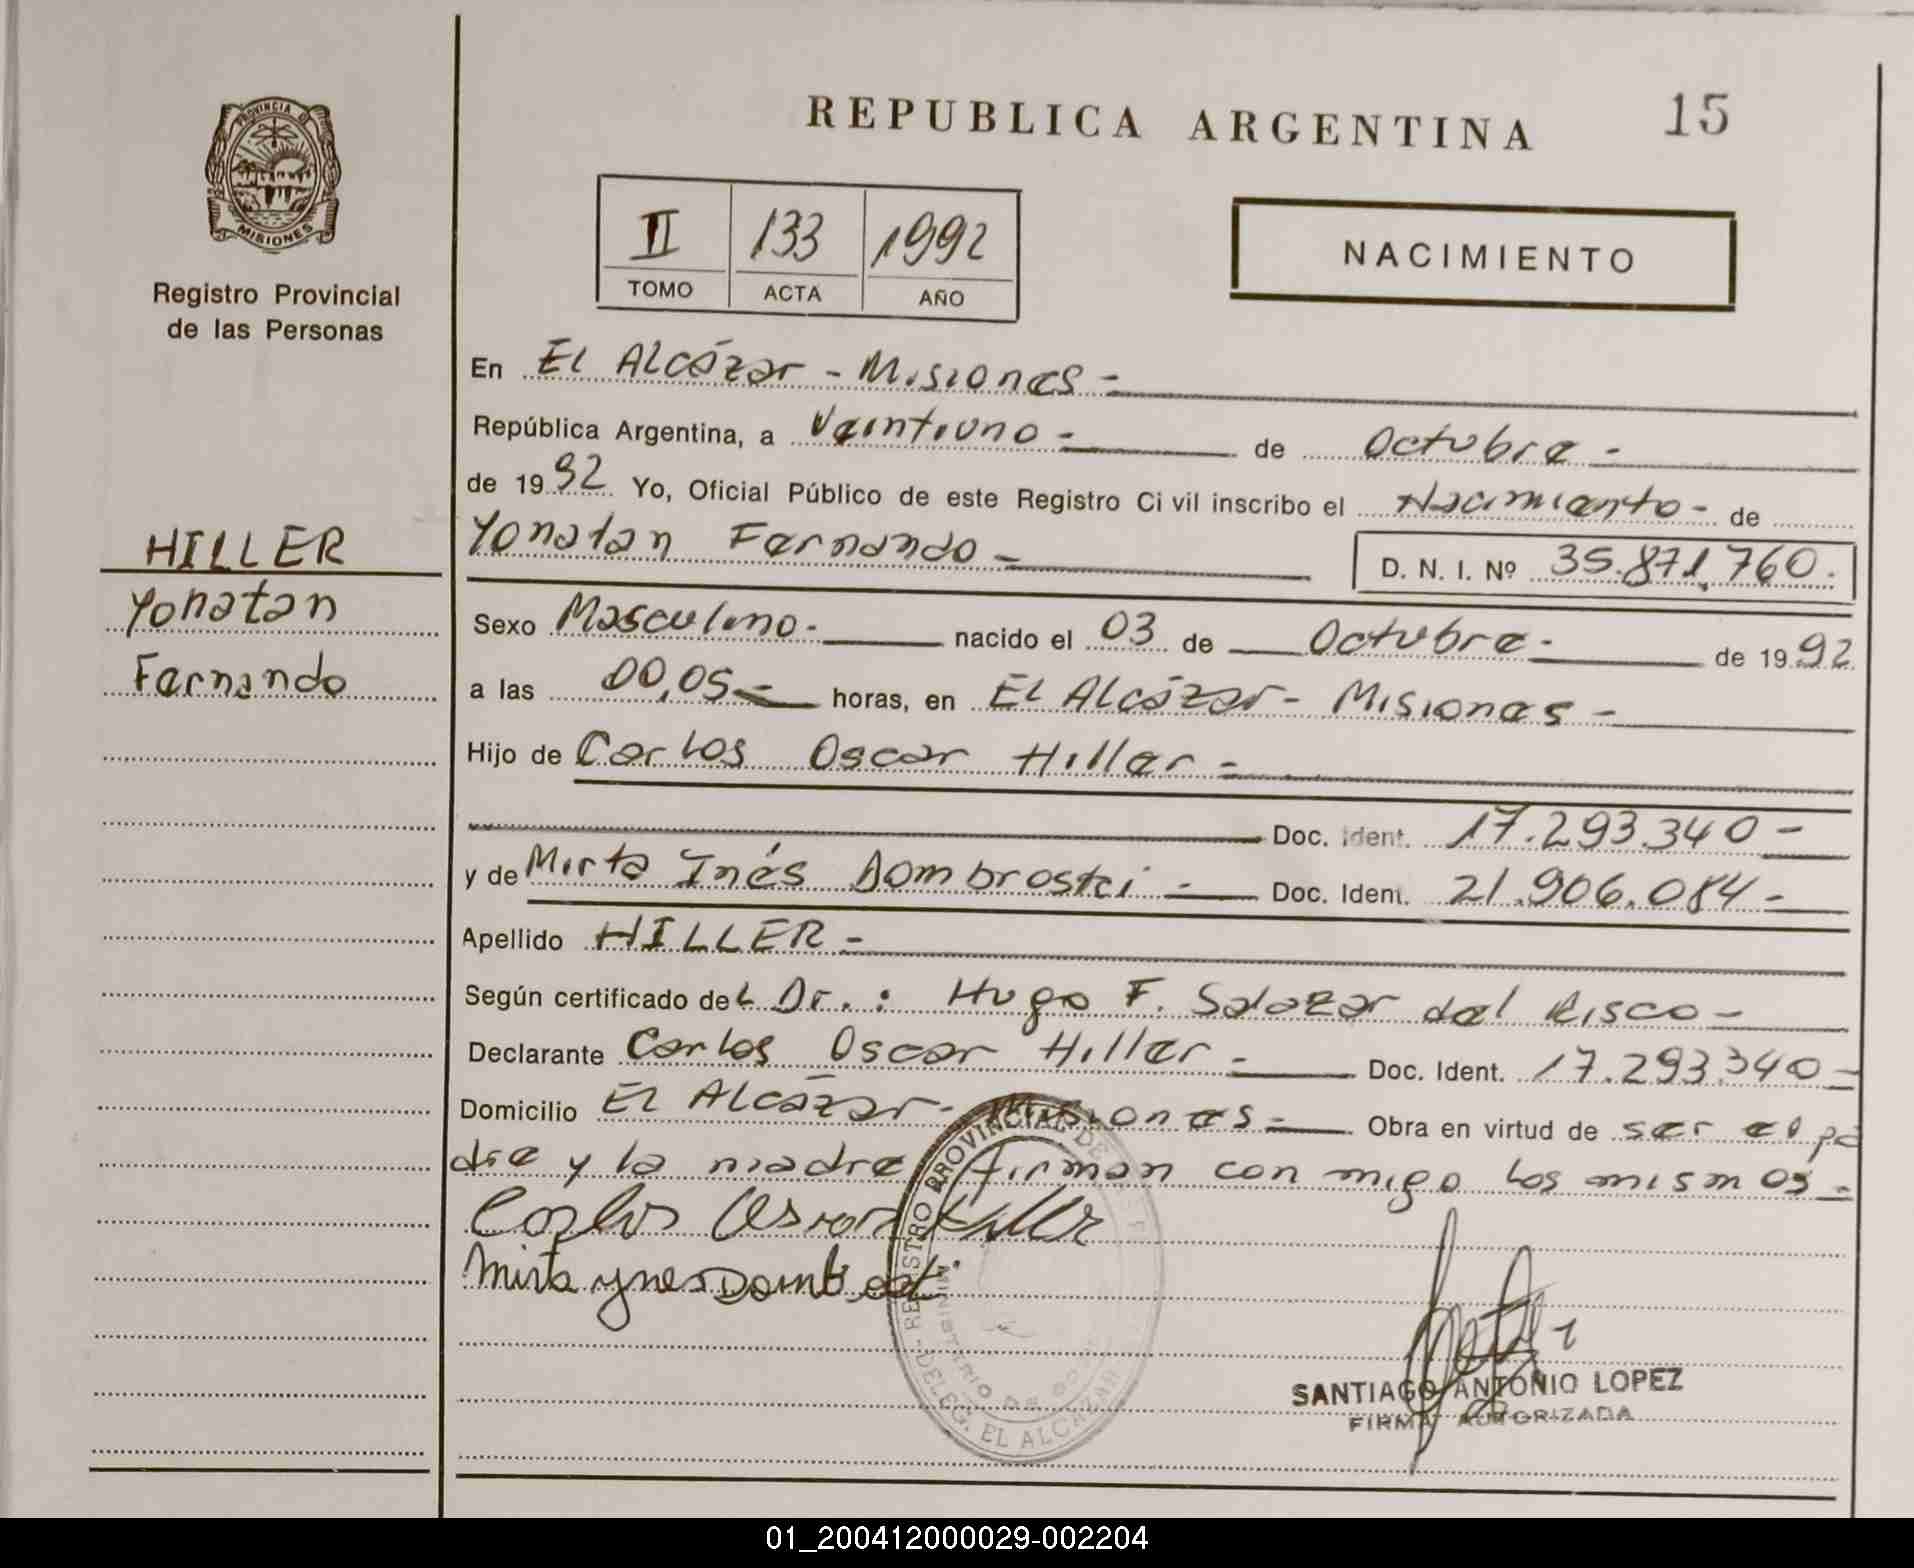 PROVINCIA DE
MISIONES
Registro Provincial
de las Personas
HILLER
Yonatan
Fernando
REPUBLICA ARGENTINA 15
II 133 1992
TOMO ACTA AÑO
NACIMIENTO
En El Alcázar - Misiones -
República Argentina, a Veintiuno - de Octubre -
de 1992 Yo, Oficial Público de este Registro Civil inscribo el Nacimiento - de
Yonatan Fernando - D. N. I. Nº 35.871.760.
Sexo Masculino - nacido el 03 de Octubre - de 1992
a las 00,05 - horas, en El Alcázar - Misiones -
Hijo de Carlos Oscar Hiller -
Doc. Ident. 17.293.340 -
y de Mirta Inés Dombroski - Doc. Ident. 21.906.084 -
Apellido HILLER -
Según certificado del Dr.: Hugo F. Salazar del Risco -
Declarante Carlos Oscar Hiller - Doc. Ident. 17.293.340 -
Domicilio El Alcázar - Misiones - Obra en virtud de ser el pa
dre y la madre firman con migo los mismos -
Carlos Oscar Hiller
Mirta ynes
REGISTRO PROVINCIAL DE
MINISTERIO DE
DELEG. EL ALCAZAR
SANTIAGO ANTONIO LOPEZ
FIRMA AUTORIZADA
01_200412000029-002204